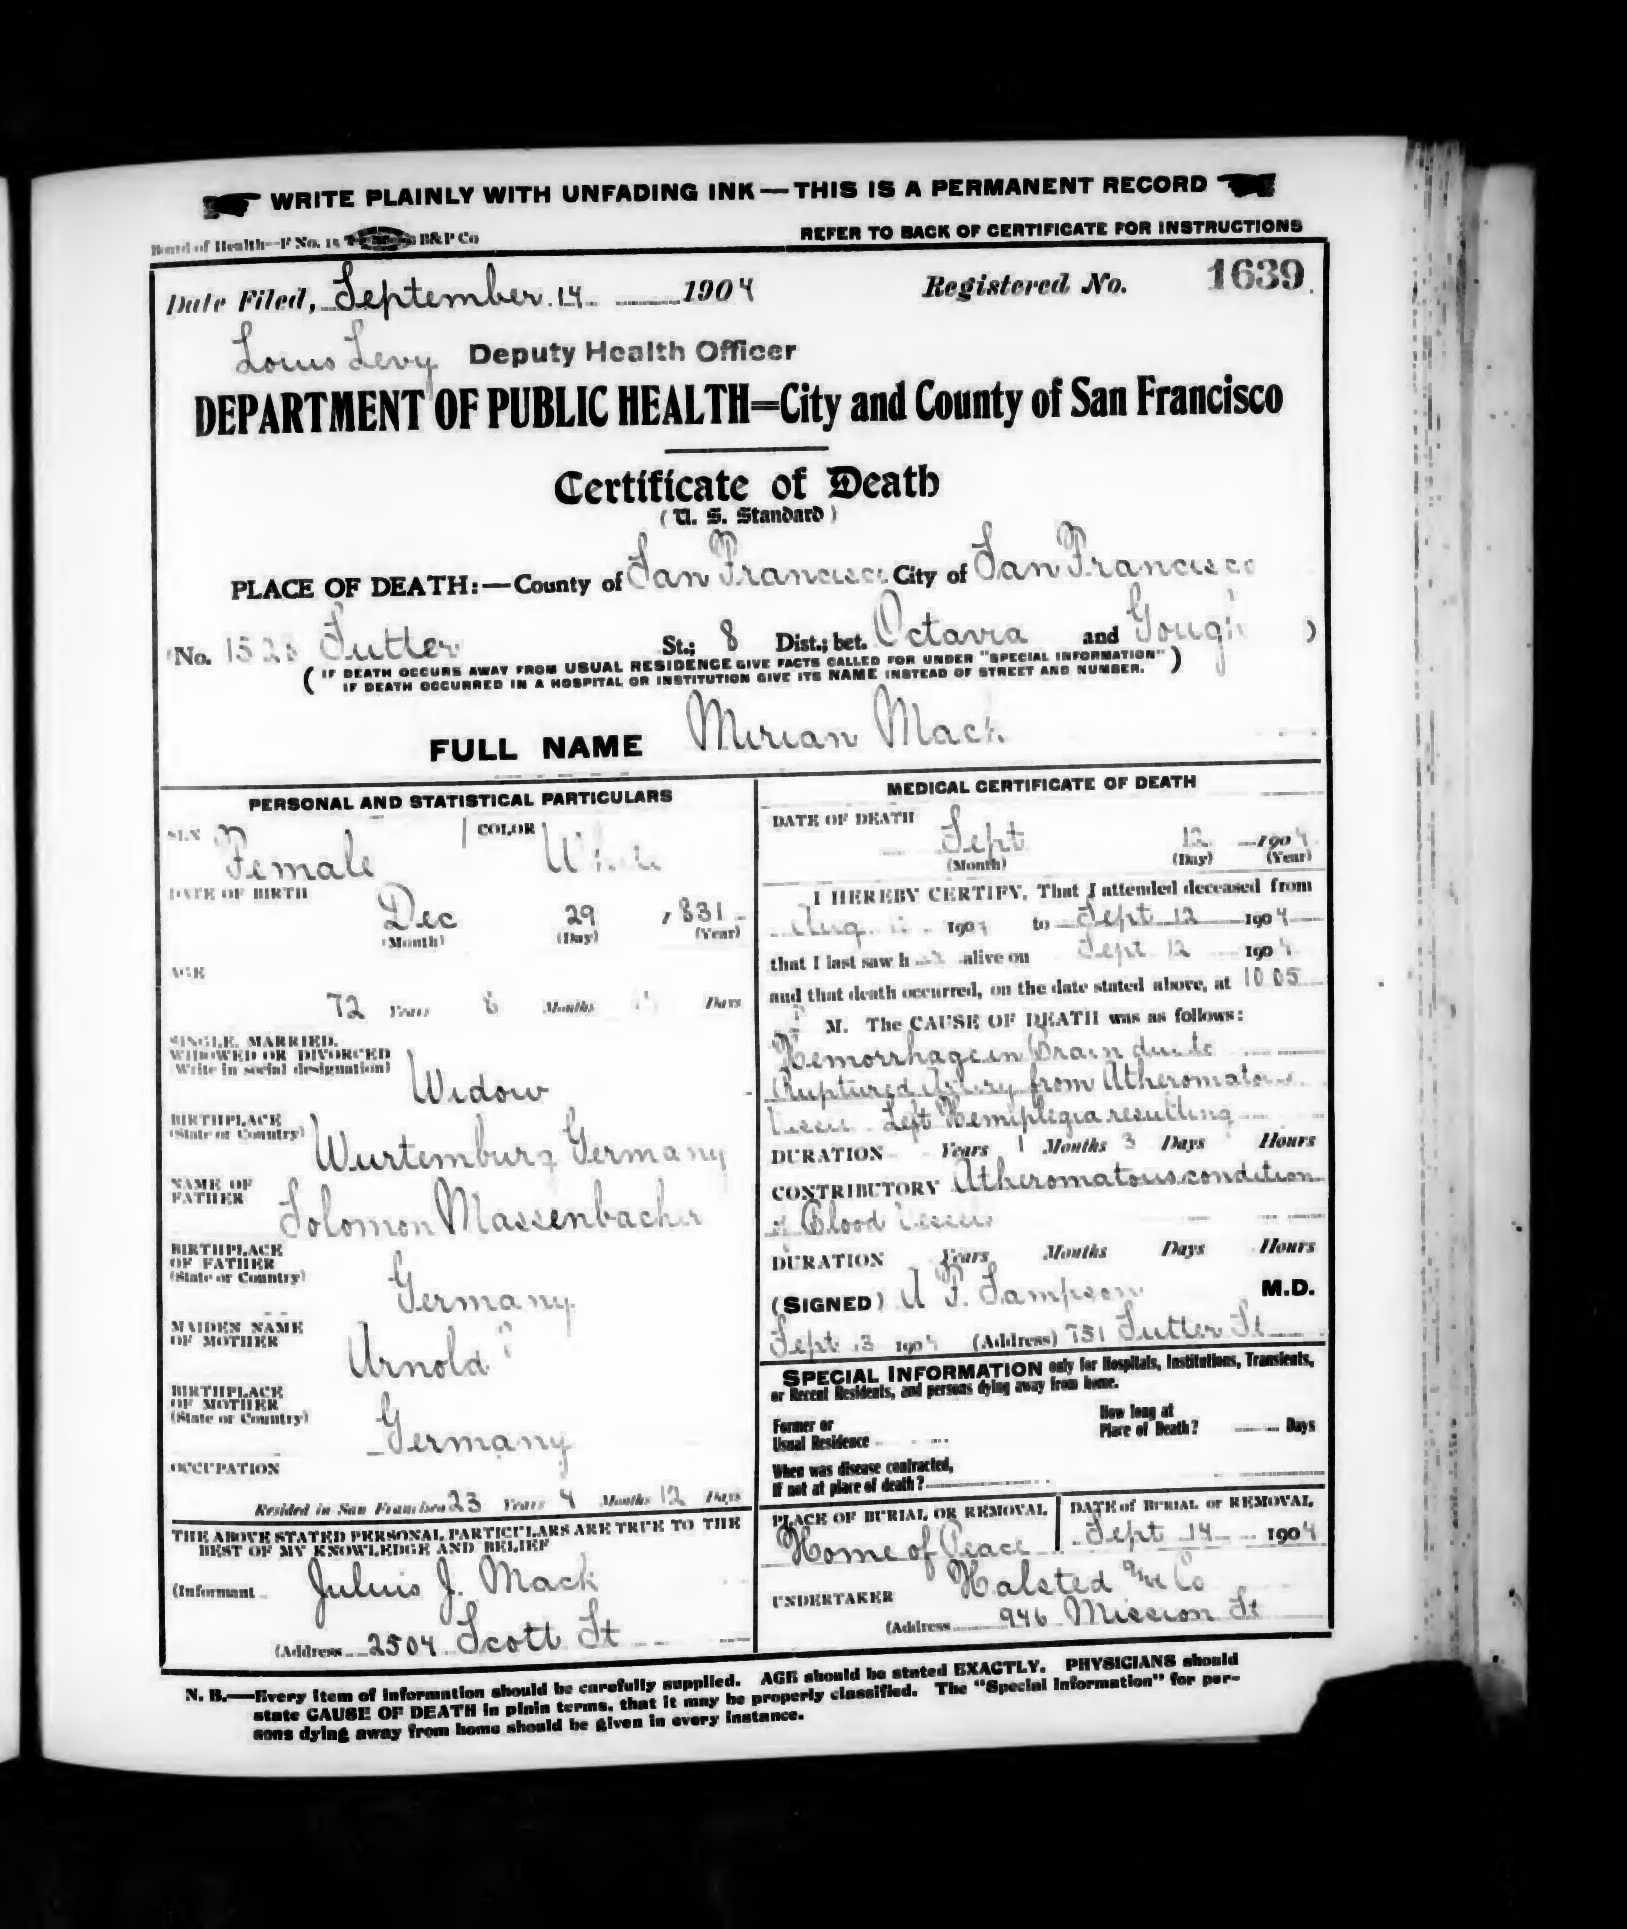 WRITE PLAINLY WITH UNFADING INK—THIS IS A PERMANENT RECORD
Board of Health—F No. 15 B&P Co
REFER TO BACK OF CERTIFICATE FOR INSTRUCTIONS
Date Filed, September 14 1904
Registered No. 1639
Louis Levy Deputy Health Officer
DEPARTMENT OF PUBLIC HEALTH=City and County of San Francisco
Certificate of Death
(U. S. Standard)
PLACE OF DEATH:—County of San Francisco City of San Francisco
(No. Sutter St.; 8 Dist.; bet. Octavia and Gough )
(IF DEATH OCCURS AWAY FROM USUAL RESIDENCE GIVE FACTS CALLED FOR UNDER "SPECIAL INFORMATION"
IF DEATH OCCURRED IN A HOSPITAL OR INSTITUTION GIVE ITS NAME INSTEAD OF STREET AND NUMBER.)
FULL NAME Mirian Mack
PERSONAL AND STATISTICAL PARTICULARS
SEX Female COLOR White
DATE OF BIRTH
Dec 29 , 1831
(Month) (Day) (Year)
AGE
72 Years 8 Months Days
SINGLE, MARRIED,
WIDOWED OR DIVORCED
(Write in social designation)
Widow
BIRTHPLACE
(State or Country)
Wurtemburg Germany
NAME OF
FATHER
Solomon Massenbacher
BIRTHPLACE
OF FATHER
(State or Country)
Germany
MAIDEN NAME
OF MOTHER
Arnold
BIRTHPLACE
OF MOTHER
(State or Country)
Germany
OCCUPATION
Resided in San Francisco 23 Years 4 Months 12 Days
THE ABOVE STATED PERSONAL PARTICULARS ARE TRUE TO THE
BEST OF MY KNOWLEDGE AND BELIEF
(Informant Julius J. Mack
(Address 2504 Scott St
MEDICAL CERTIFICATE OF DEATH
DATE OF DEATH
Sept 12 1904
(Month) (Day) (Year)
I HEREBY CERTIFY, That I attended deceased from
Aug. 1904 to Sept 12 1904
that I last saw h alive on Sept 12 1904
and that death occurred, on the date stated above, at 10 05
P M. The CAUSE OF DEATH was as follows:
Hemorrhage in Brain due to
Ruptured Artery from Atheromatous
Left Hemiplegia resulting
DURATION Years 1 Months 3 Days Hours
CONTRIBUTORY Atheromatous condition
of Blood Vessels
DURATION Years Months Days Hours
(SIGNED) A F. Sampson M.D.
Sept 13 1904 (Address) 751 Sutter St
SPECIAL INFORMATION only for Hospitals, Institutions, Transients,
or Recent Residents, and persons dying away from home.
Former or
Usual Residence
How long at
Place of Death? Days
When was disease contracted,
If not at place of death?
PLACE OF BURIAL OR REMOVAL
Home of Peace
DATE of BURIAL or REMOVAL
Sept 14 1904
UNDERTAKER Halsted and Co
(Address 946 Mission St
N. B.—Every item of information should be carefully supplied. AGE should be stated EXACTLY. PHYSICIANS should
state CAUSE OF DEATH in plain terms, that it may be properly classified. The "Special Information" for per-
sons dying away from home should be given in every instance.